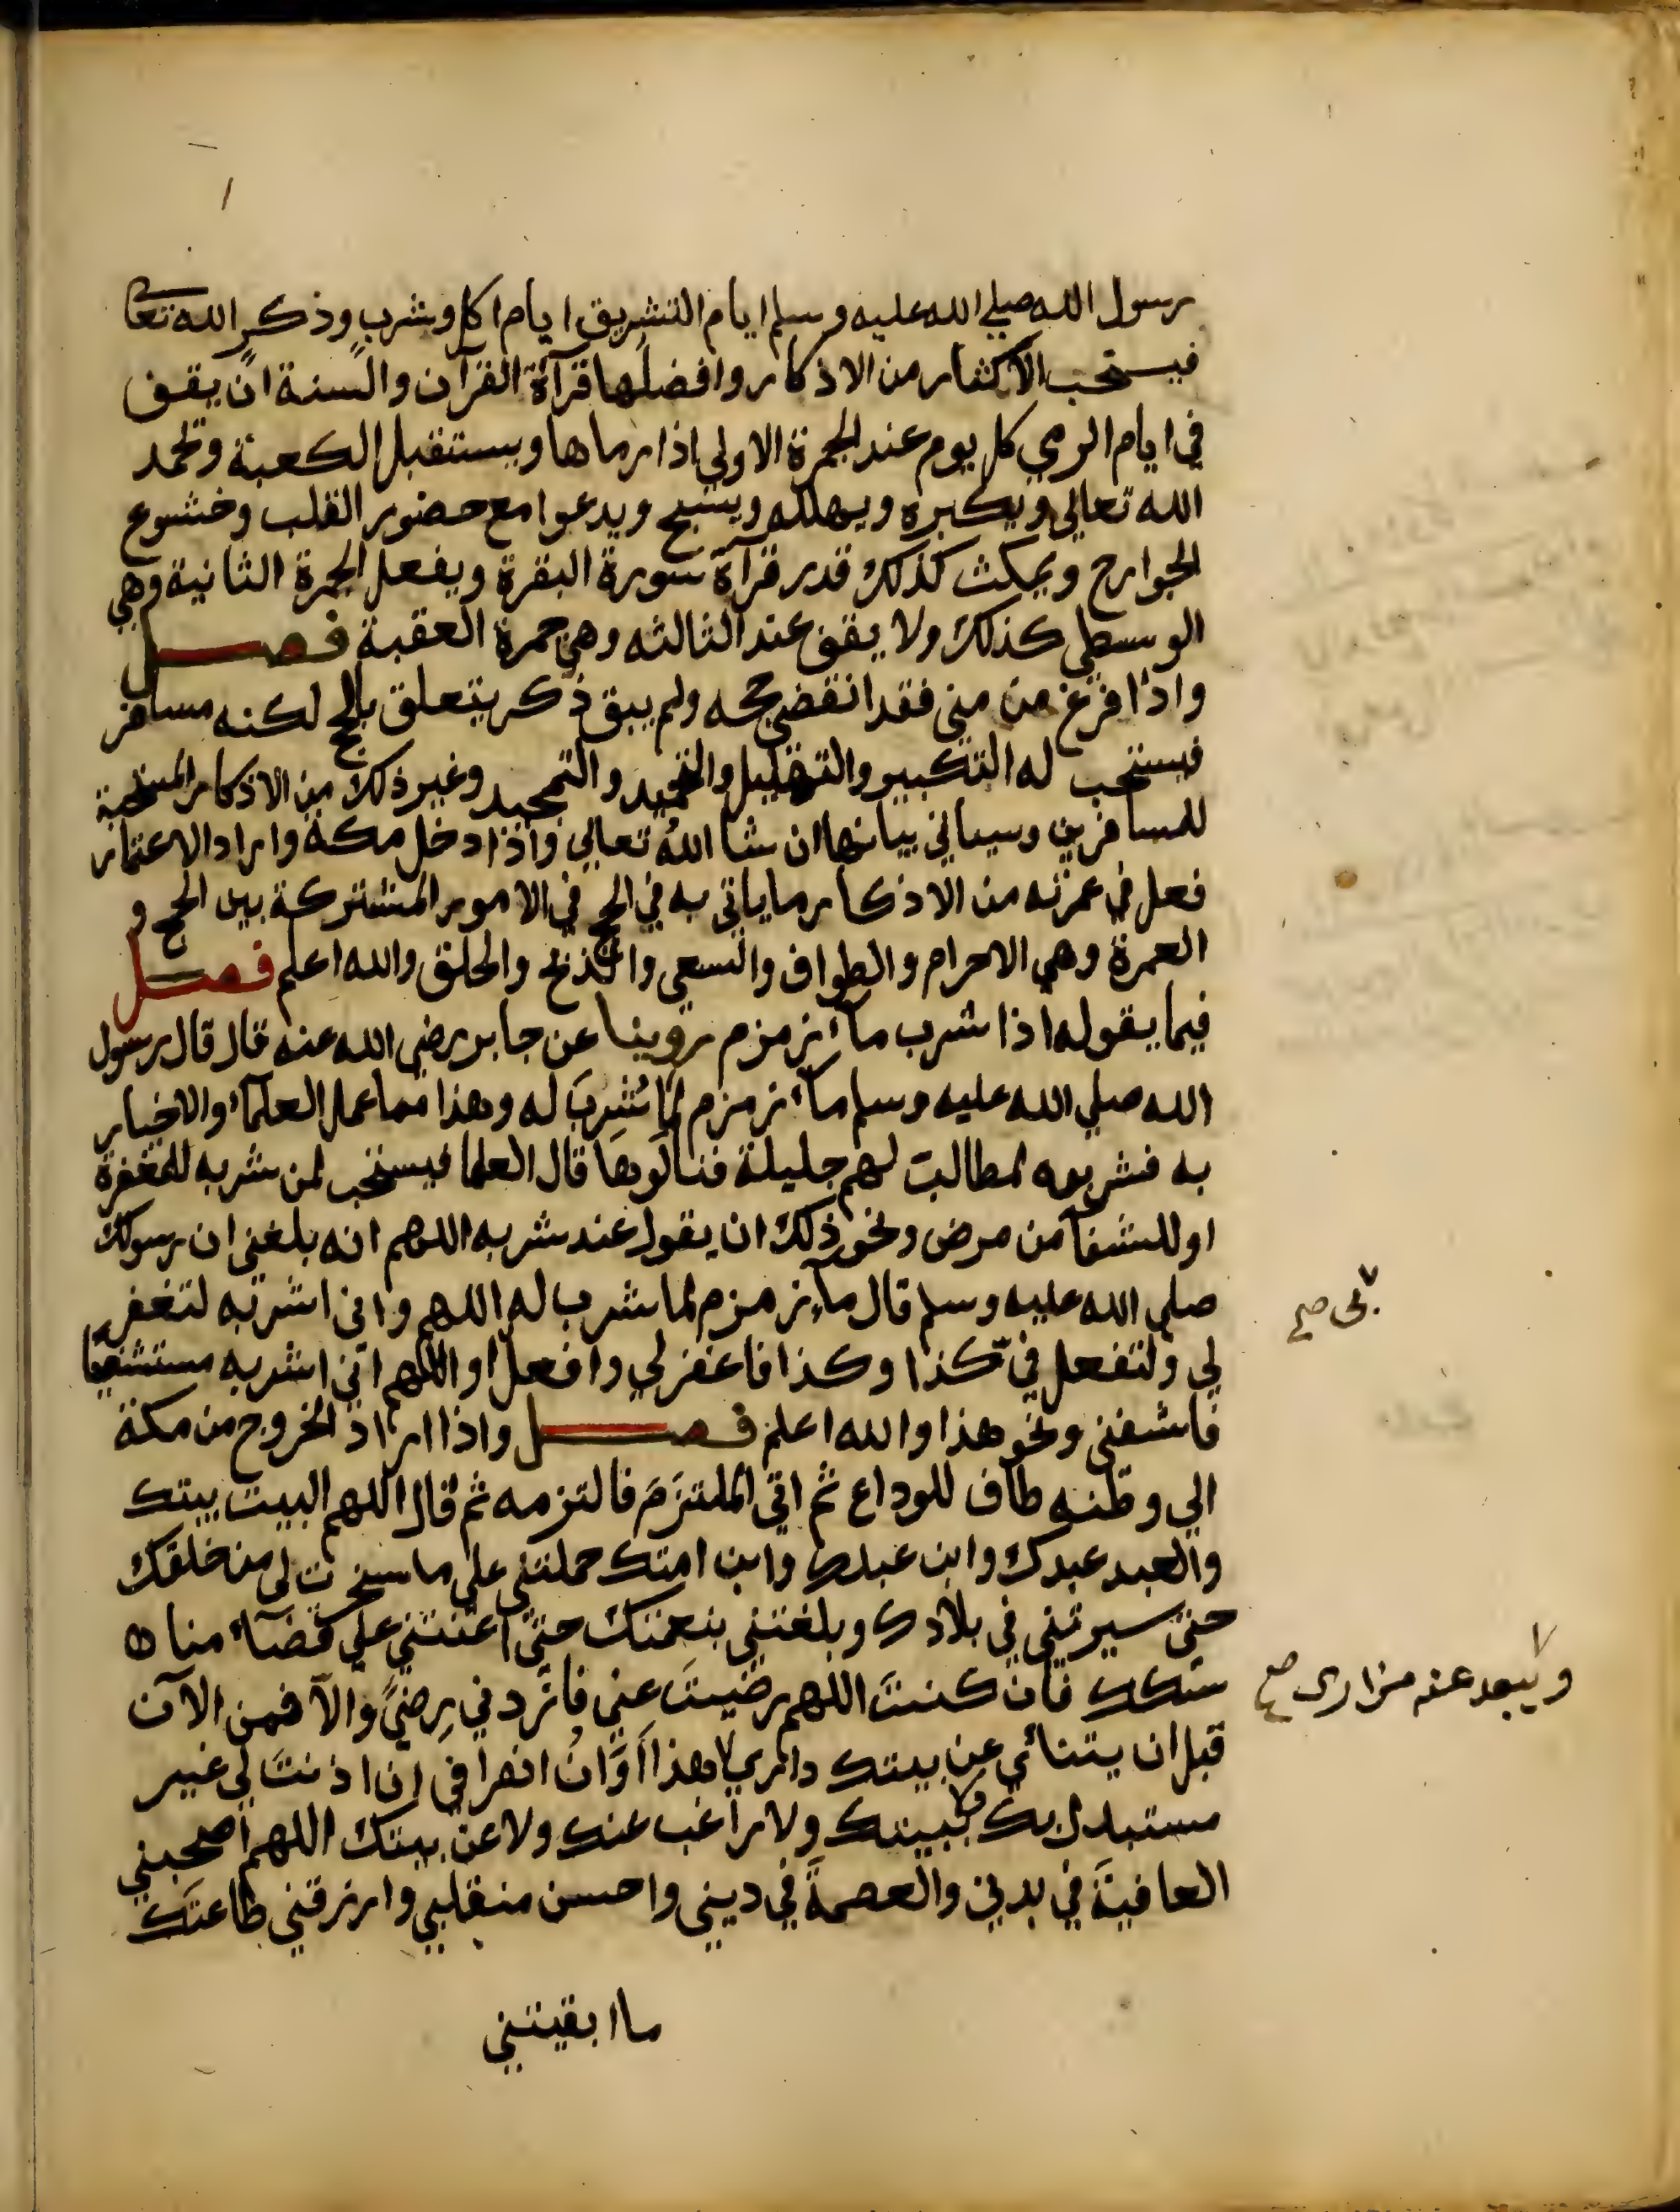 رسول الله صلي الله عليه وسلم ايام التشريق ايام اكل وشرب وذكر الله تعا
فيستحب الاكثار من الاذكار وافضلها قرآة القرآن والسنة ان يقف
في ايام الرمي كل يوم عند الجمرة الاولي اذا رماها ويستقبل الكعبة وتحمد
الله تعالي ويكبره ويهلله ويسبح ويدعوا مع حضور القلب وخشوع
الجوارح ويمكث كذلك قدر قرآة سورة البقرة ويفعل الجمرة الثانية وهي
الوسطي كذلك ولا يقف عند الثالثه وهي جمرة العقبة فصل
واذا فرغ من مني فقد انقضي حجه ولم يبق ذكر يتعلق بالحج لكنه مسافر
فيستحب له التكبير والتهليل والتحميد والتمجيد وغير ذلك من الاذكار المستحبة
للمسافرين وسياتي بيانها ان شا الله تعالي واذا دخل مكة واراد الاعتمار
فعل في عمرته من الاذكار ما ياتي به في الحج في الامور المشتركة بين الحج و
العمرة وهي الاحرام والطواف والسعي والذبح والحلق والله اعلم فصل
فيما يقوله اذا شرب مآء زمزم روينا عن جابر رضي الله عنه قال قال رسول
الله صلي الله عليه وسلم مآء زمزم لما شُرِبَ له وهذا مما عمل العلمآء والاخيار
به فشربوه لمطالب لهم جليلة فنالوها قال العلما فيستحب لمن شربه للمغفرة
او للشفآ من مرض ونحو ذلك ان يقول عند شربه اللهم انه بلغني ان رسولك
صلي الله عليه وسلم قال مآء زمزم لما شرب له اللهم واني اشربه لتغفر
لي ولتفعل في كذا وكذا فاغفر لي وافعل او اللهم اني اشربه مستشفيا
فاشفني ونحو هذا والله اعلم فصل واذا اراد الخروج من مكة
الي وطنه طاف للوداع ثم اتي الملتزَمَ فالتزمه ثم قال اللهم البيت بيتك
والعبد عبدك وابن عبدك وابن امتك حملتني علي ما سخرت لي من خلقك
حتي سيرتني في بلادك وبلغتني بنعمتك حتي اعنتني علي قضآء منا
سكك فان كنتَ اللهم رضيتَ عني فازدد ني رِضيً والآ فمن الآن
قبل ان يتنائي عن بيتك داري هذا اَوَانُ انصرافي ان اذنتَ لي غير
مستبدل بك ولا ببيتك ولا راغب عنك ولا عن بيتك اللهم اصحبني
العافيةَ في بدني والعصمةَ في ديني واحسن منقلبي وارزقني طاعتَك
ما ابقيتني
بي صح
ويبعد عنه مزاري صح